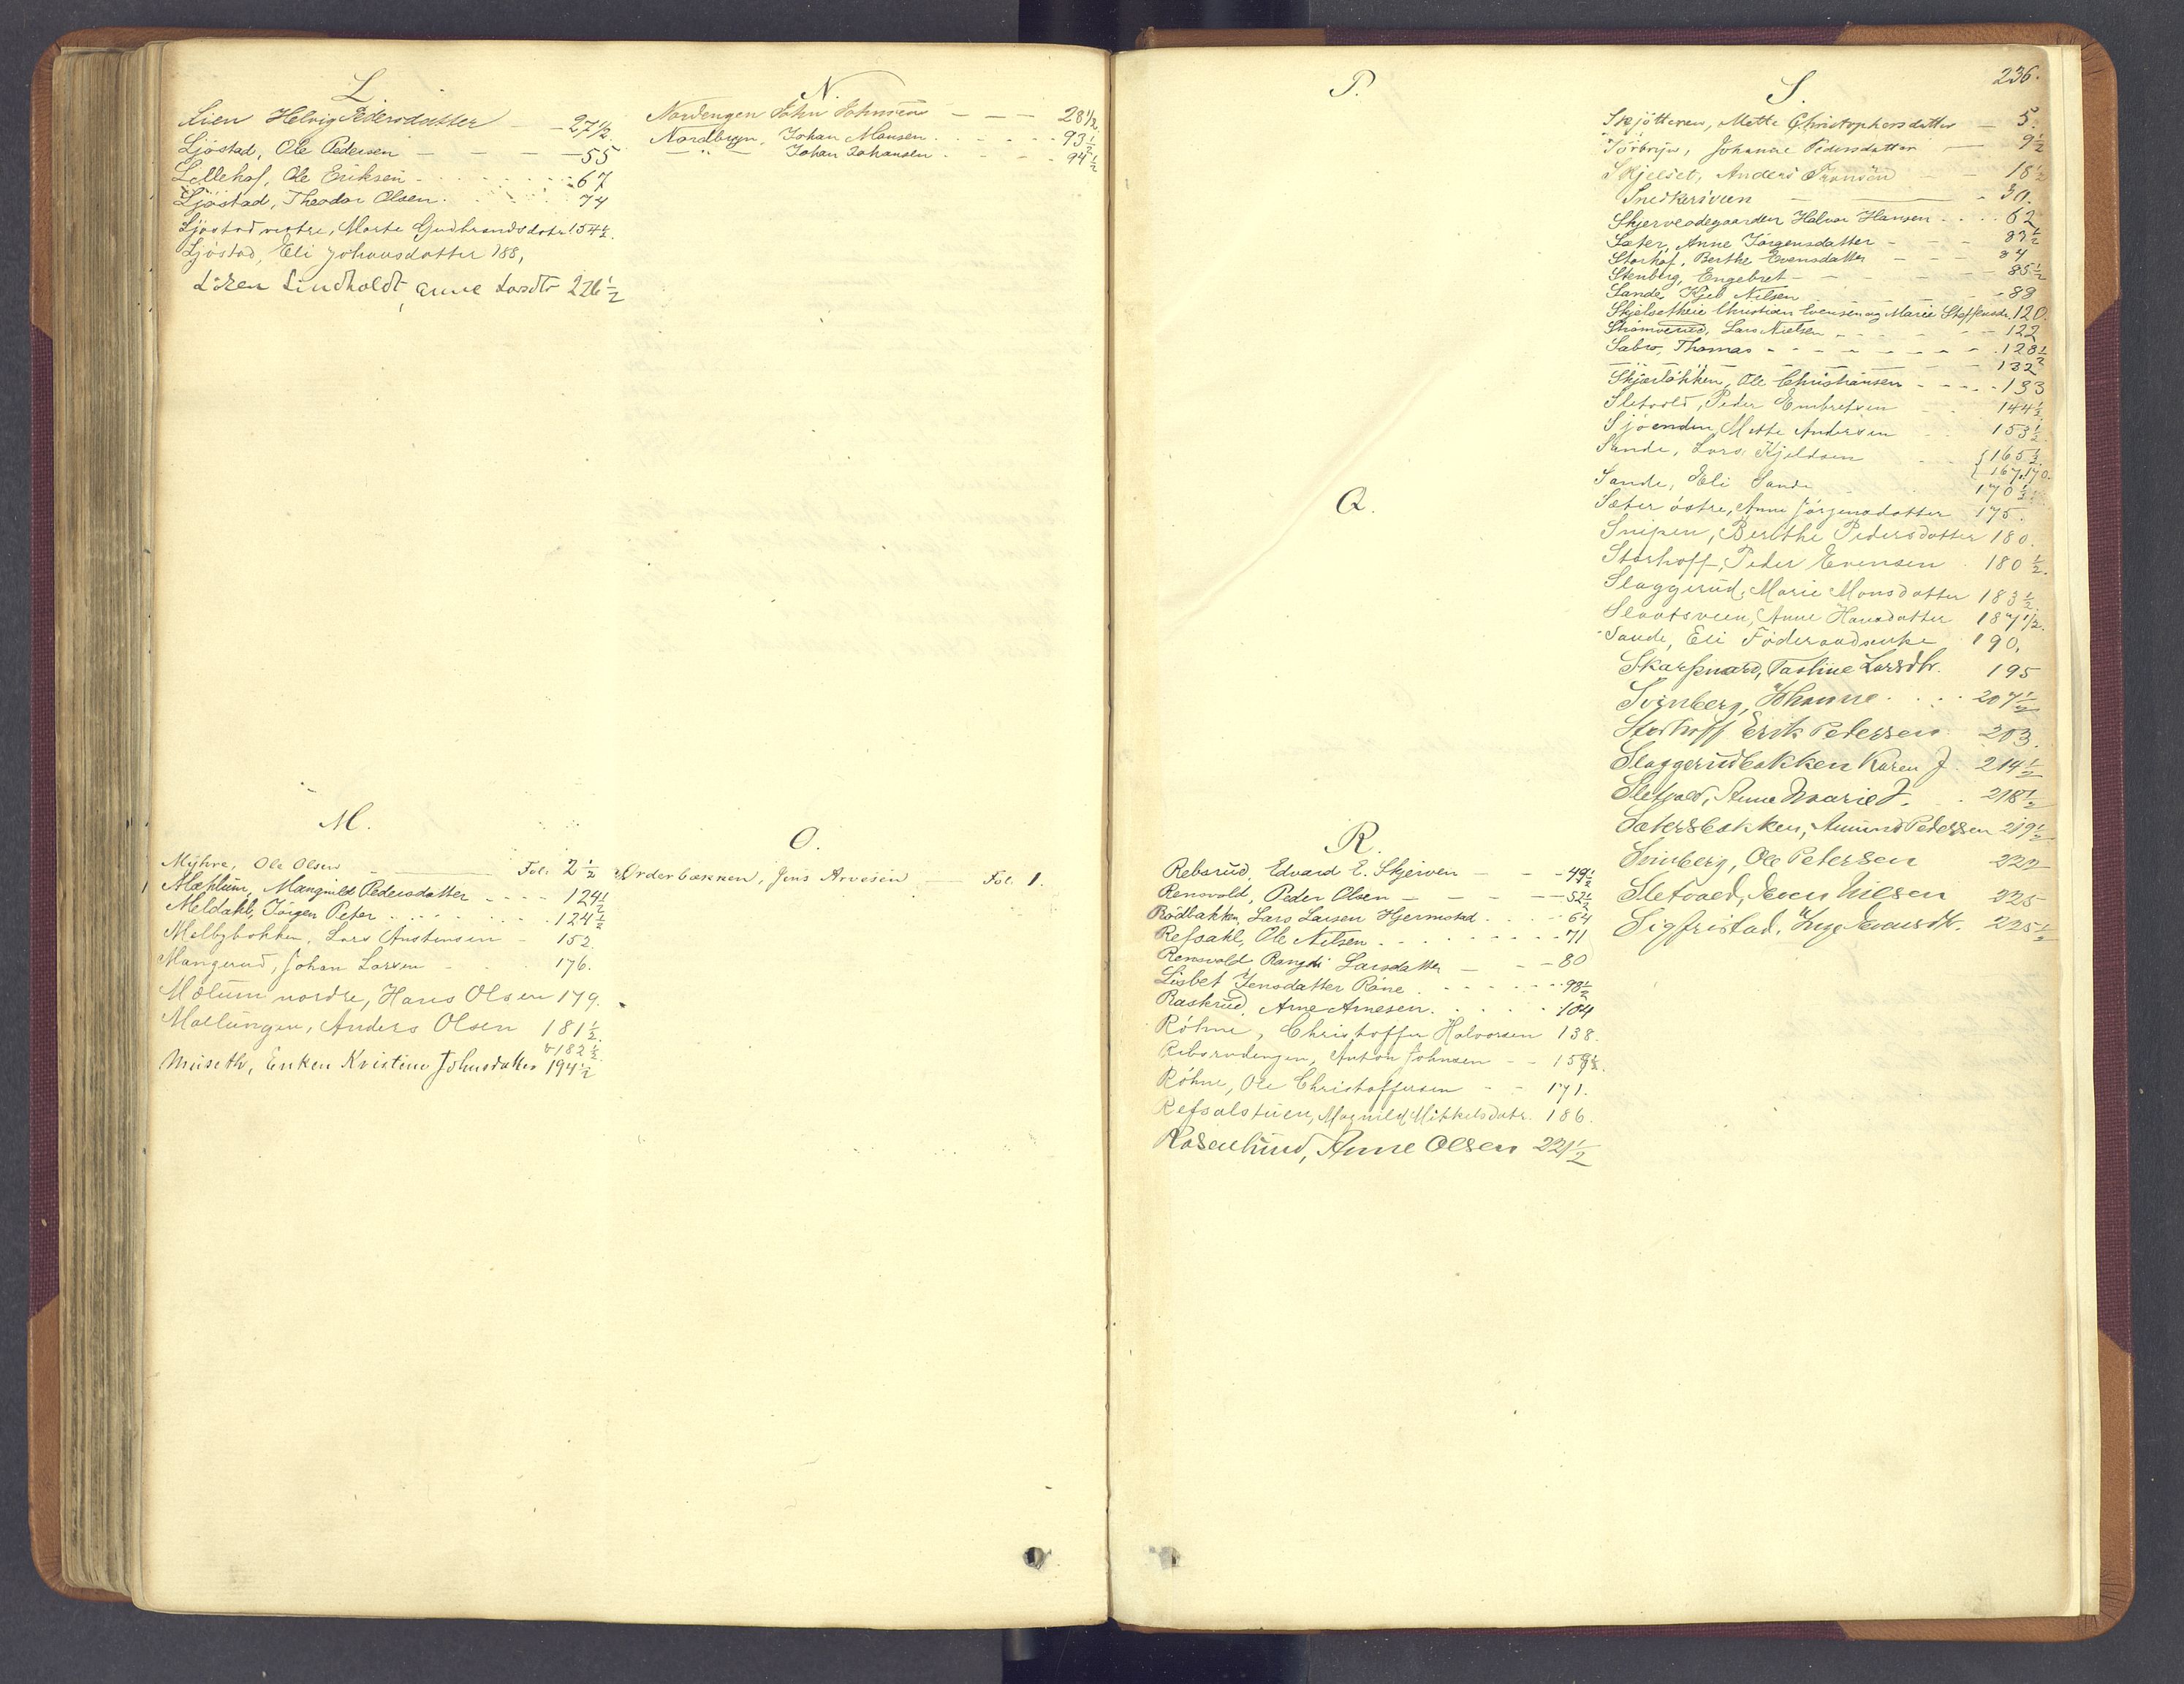 L.
Lien Helvig Pedersdatter - 27 1/2.
Ljöstad, Ole Pedersen - - - - 55
Lellehof, Ole Eriksen - 67
Ljöstad, Theodor Olsen. 74
Ljöstad vestre, Marte Gudbrandsdatr. 154 1/2.
Ljöstad, Eli Johansdatter 188,
Lindholdt, Anne Larsdtr 226 1/2
M.
Myhre, Ole Olsen Fol: 2 1/2
Mæhlum, Mangnild Pedersdatter - - - - 124 1/2
Meldahl, Jörgen Peter 124 1/2
Melbybakken, Lars Austensen - 152.
Mangerud, Johan Larsen - 176.
Mælum nordre, Hans Olsen 179.
Mællungen, Anders Olsen 181 1/2.
182 1/2.
Museth, Enken Kristine Johnsdatter 194 1/2
N.
Nordengen John Johnsen - - - 28 1/2.
Nordbyen, Johan Mansen. 93 1/2
— " — Johan Johansen. 94 1/2
O.
Orderbækken, Jens Arvesen Fol. 1.
P.
Q.
R.
Rebsrud, Edvard E. Skjerven - - - 49 1/2
Rensvold, Peder Olsen - - - - 52 1/2
Rödbakken, Lars Larsen Hjermstad. 64
Refsahl, Ole Nilsen. 71
Rensvold Rangdi Larsdatter - - - 80
Lisbet Jensdatter Röne. 98 1/2
Raskrud, Arne Arnesen. 104
Röhne, Christoffer Halvorsen 138.
Rebsrudengen, Anton Johnsen - - 159 1/2.
Röhne, Ole Christoffersen - - 171.
Refsalstuen, Magnild Mikkelsdatr. 186.
Rosenlund, Anne Olsen 221 1/2
236.
S.
Skjötteren, Mette Christophersdatter - 5.
Sörbryn, Johanne Pedersdatter - 9 1/2
Skjelset, Anders Iversen - - 18 1/2
Snedkersveen - 30.
Skjerveodegaarden Halvor Hansen. 62
Sæter, Anne Jörgensdatter - - - 83 1/2
Storhof, Berthe Evensdatter - - - 84
Stenberg, Engebret - 85 1/2
Sande, Kjel Nilsen - 89
Skjelsetheie Christian Evensen og Marie Steffensdr. 120.
Strömverud, Lars Nielsen - 122
Sabro, Thomas - 128 1/2
— " — 132
Skjærlökken, Ole Christiansen - - - - 133
Sletvold, Peder Embretsen 144 1/2
Sjöenden, Mette Andersen 153 1/2.
Sande, Lars Kjeldsen { 165 1/2
{ 167. 170.
Sande, Eli Sande 170 1/2.
Sæter östre, Anne Jörgensdatter 175.
Snipen, Berthe Pedersdatter 180.
Storhoff, Peder Evensen. 180 1/2.
Slaggerud, Marie Monsdatter 183 1/2.
Slaatsveen, Anne Hansdatter 187 1/2.
Sande, Eli Föderaadsenke 190,
Skarpnord, Pauline Larsdtr. 195
Svinberg, Johanne. 207 1/2
Storhoff Erik Petersen. 203.
Slaggerudbakken Karen J. 214 1/2
Sletvold, Anne Marie J. 218 1/2
Sætersbakken, Amund Pedersen 219 1/2
Svinberg, Ole Petersen 222
Sletvold, Even Nilsen 225
Sigfristad, Inge Evensdtr. 225 1/2